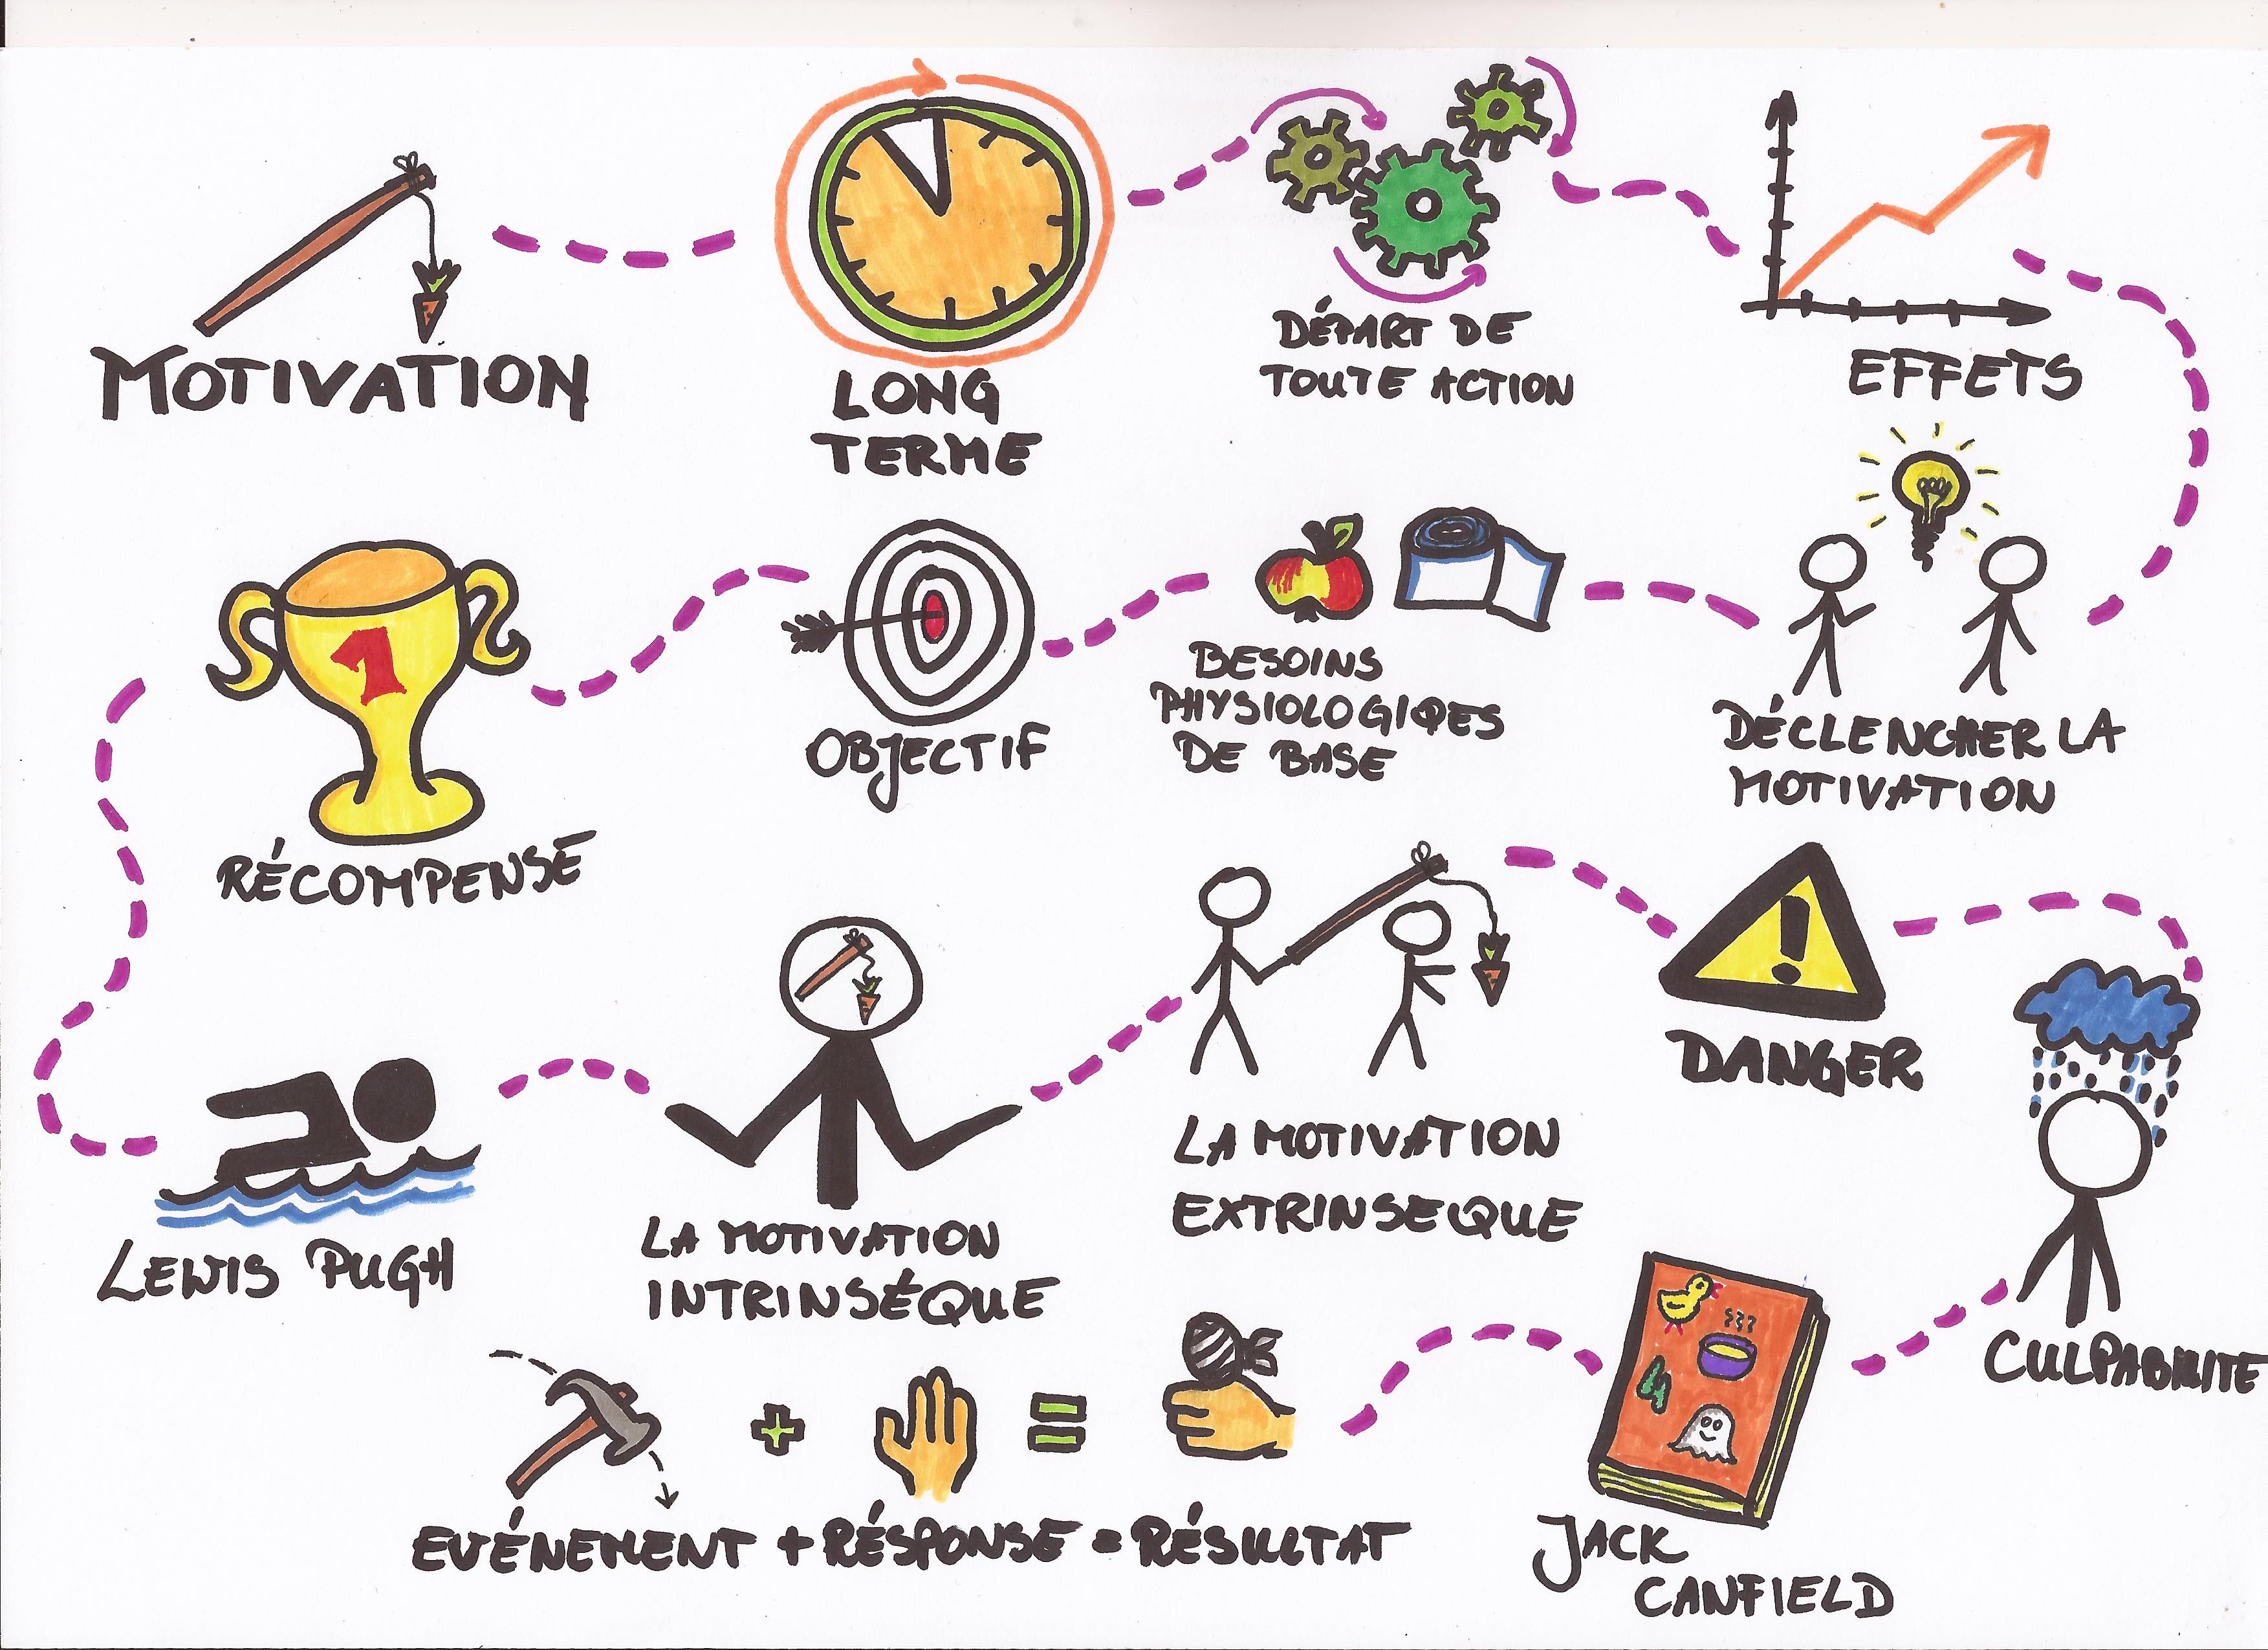 MOTIVATION
LONG
TERME
DÉPART DE
TOUTE ACTION
EFFETS
DÉCLENCHER LA
MOTIVATION
BESOINS
PHYSIOLOGIQES
DE BASE
OBJECTIF
1
RÉCOMPENSE
LEWIS PUGH
LA MOTIVATION
INTRINSÉQUE
LA MOTIVATION
EXTRINSEQUE
DANGER
CULPABILITE
JACK
CANFIELD
EVÉNEMENT + RÉSPONSE = RÉSULTAT